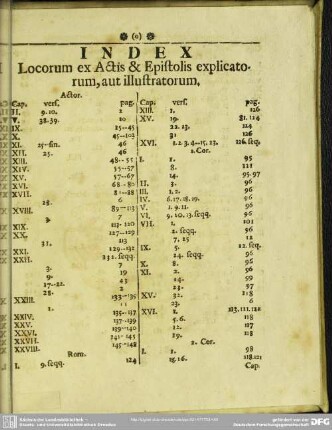 (o)
INDEX
Locorum ex Actis & Epistolis explicato-
rum, aut illustratorum.
Actor.
Cap. vers. pag.
II. 9. 10. 2
V. 38-39. 10
IX. 25--45
X. 45--102
XI. 25--fin. 46
XII. 25. 46
XIII. 48--55
XIV. 55--57
XV. 57--67
XVI. 68--80
XVII. 81--88
28. 6
XVIII. 89--113
7
XIX. 113-120
XX. 127--129
113
31. 129-132
XXI. 23.1. seqq.
XXII. 7
3. 19
9. 43
17--22. 2
28.
XXIII. 133--135
11
1. 135--137
XXIV. 137--139
XXV. 139--140
XXVI. 141--145
XXVII. 145--148
XXVIII.
Rom.
I. 9. seqq. 124
Cap. vers. pag.
XIII. 1. 126
XV. 19. 81. 124
22. 23. 124
31. 126
XVI. 1. 2. 3. 4--15. 23. 126. seq.
1. Cor.
I. 1. 95
8. 121
14. 95. 97
II. 3. 96
III. 1. 2. 96
IV. 6. 17. 18. 19. 96
V. 1. 9. 11. 96
VI. 9. 10. 13. seqq. 96
VII. 1. 101
1. seqq. 96
7. 25 12
IX. 5. 12. seq.
24. seqq. 96
X. 8. 96
XI. 2. 96
14. 59
23. 57
XV. 32. 118
23. 6
XVI. 1. 113. 111. 122
5. 6. 118
12. 117
19. 118
2. Cor.
I. 1. 98
15. 16. 118. 121
Cap.